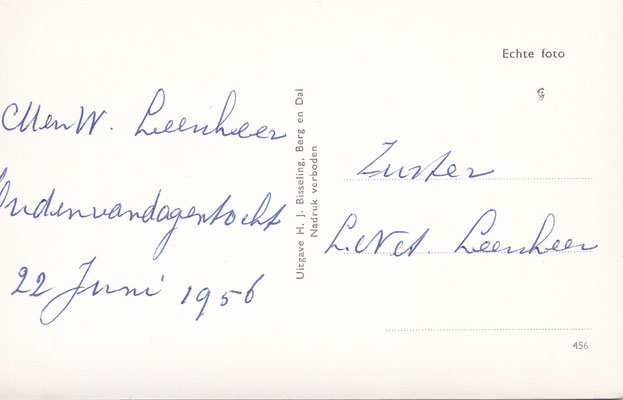 M en W. Leenheer
Oudenvandagentocht
22 Juni 1956
Uitgave H. J. Bisseling, Berg en Dal
Nadruk verboden
Echte foto
Zuster
Leenheer
456